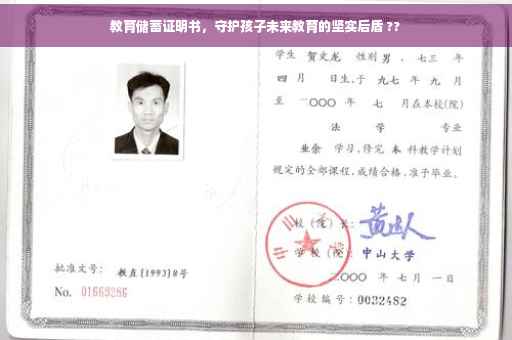 教育储蓄证明书，守护孩子未来教育的坚实后盾 ??
学生 贺文龙 性别 男，七三 年
四 月 日生，于 九七 年 九 月
至 二〇〇〇 年 七 月在本校(院)
法 学 专业
业余 学习，修完 本 科教学计划
规定的全部课程，成绩合格，准予毕业。
校（院）长：
学 校（院）： 中山大学
批准文号： 教直[1993]8号
二〇〇〇 年 七 月 一 日
No. 01669286
学校编号：0032482